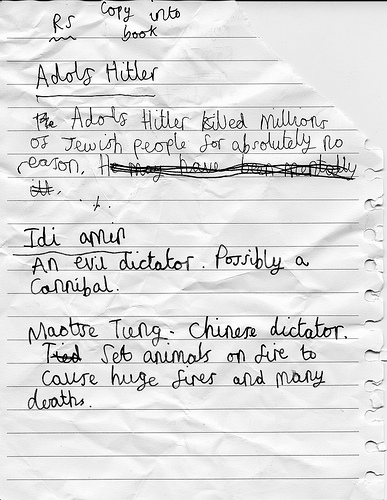 RS Copy into
book
Adolf Hitler
The Adolf Hitler killed Millions
of Jewish people for absolutely no
reason. He may have been mentally
ill.
Idi amin
An evil dictator. Possibly a
Cannibal.
Maotse Tung - Chinese dictator.
Tied Set animals on fire to
cause huge fires and many
deaths.